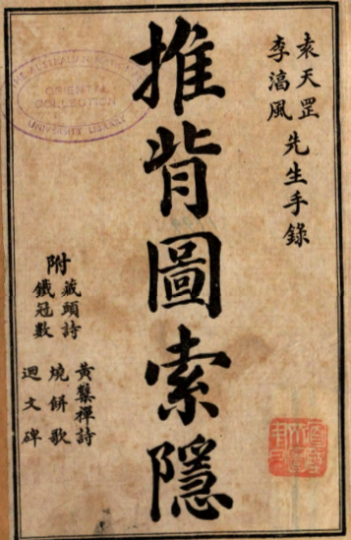 袁天罡
李湻風
先生手錄
推背圖索隱
附
藏頭詩
鐵冠數
黃蘗禪詩
燒餅歌
迴文碑
THE AUSTRALIAN NATIONAL
ORIENTAL
COLLECTION
UNIVERSITY LIBRARY